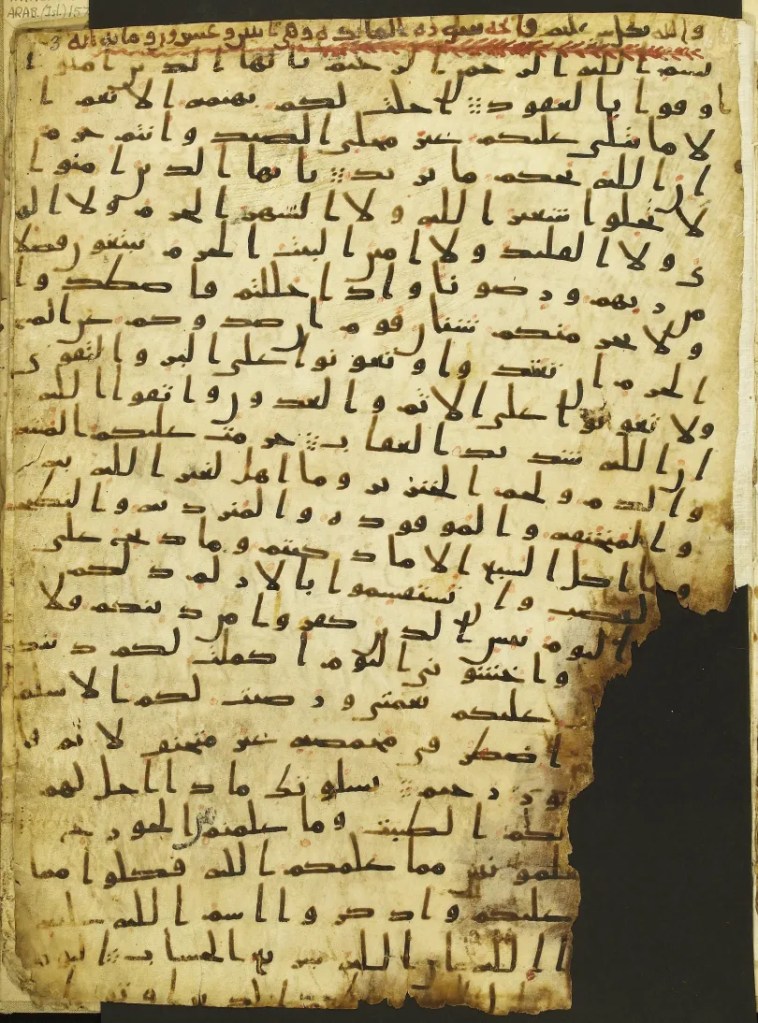 والله بكل شى عليم فاتحه سوره المايده وهى
بسم الله الرحمن الرحيم يايها الذين امنوا ا
وفوا بالعقود احلت لكم بهيمه الانعم ا
لا ما يتلى عليكم غير محلى الصيد وانتم حرم
ان الله يحكم ما يريد يايها الذين امنوا
لا تحلوا شعير الله ولا الشهر الحرم ولا الهد
ى ولا القليد ولا امين البيت الحرم يبتغون فضلا
من ربهم ورضونا واذا حللتم فاصطدوا
ولا يجرمنكم شنان قوم ان صدوكم عن المسجد
الحرم ان تعتدوا وتعونوا على البر والتقوى
ولا تعونوا على الاثم والعدون واتقوا الله
ان الله شديد العقاب حرمت عليكم الميته
والدم ولحم الخنزير وما اهل لغير الله به
والمنخنقه والموقوذه والمترديه والنطيحه
وما اكل السبع الا ما ذكيتم وما ذبح على
النصب وان تستقسموا بالازلم ذلكم
اليوم يئس الذين كفروا من دينكم فلا
واخشونى اليوم اكملت لكم دينكم
عليكم نعمتى ورضيت لكم الاسلم
اضطر فى مخمصه غير متجنف لاثم فا
غفور رحيم يسلونك ماذا احل لهم
لكم الطيبت وما علمتم من الجورح
تعلمونهن مما علمكم الله فكلوا مما
عليكم واذكروا اسم الله عليه
الله ان الله سريع الحساب اليوم